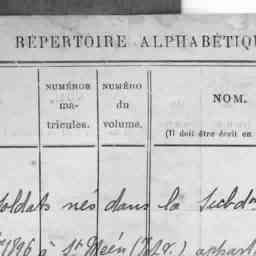 RÉPERTOIRE ALPHABÉTIQU
NUMÉROS
ma-
tricules.
NUMÉRO
du
volume.
NOM.
(Il doit être écrit en
soldats nés dans la Subd
1896 à St Méen (I.&V.) appart